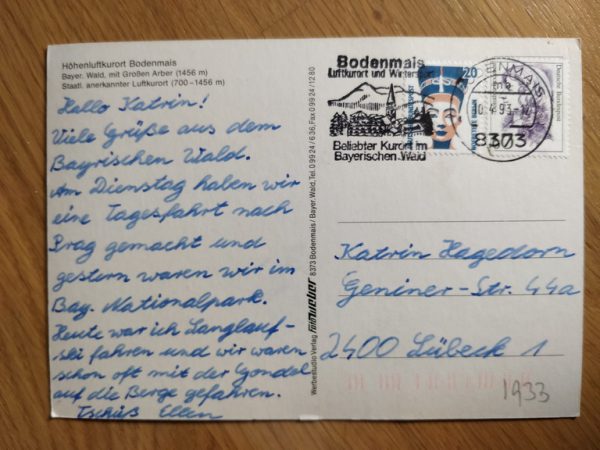 Höhenluftkurort Bodenmais
Bayer. Wald, mit Großen Arber (1456 m)
Staatl. anerkannter Luftkurort (700–1456 m)
Hallo Katrin!
Viele Grüße aus dem
Bayrischen Wald.
Am Dienstag haben wir
eine Tagesfahrt nach
Prag gemacht und
gestern waren wir im
Bay. Nationalpark.
Heute war ich Langlauf-
ski fahren und wir waren
schon oft mit der Gondel
auf die Berge gefahren.
Tschüß Ellen
Werbestudio Verlag foto 8373 Bodenmais / Bayer. Wald, Tel. 0 99 24 / 6 36, Fax 0 99 24 / 12 80
Bodenmais
Luftkurort und Wintersport
Beliebter Kurort im
Bayerischen Wald
20
BODENMAIS
4.93
8373
Deutsche Bundespost
Katrin Hagedorn
Geniner-Str. 44a
2400 Lübeck 1
1933